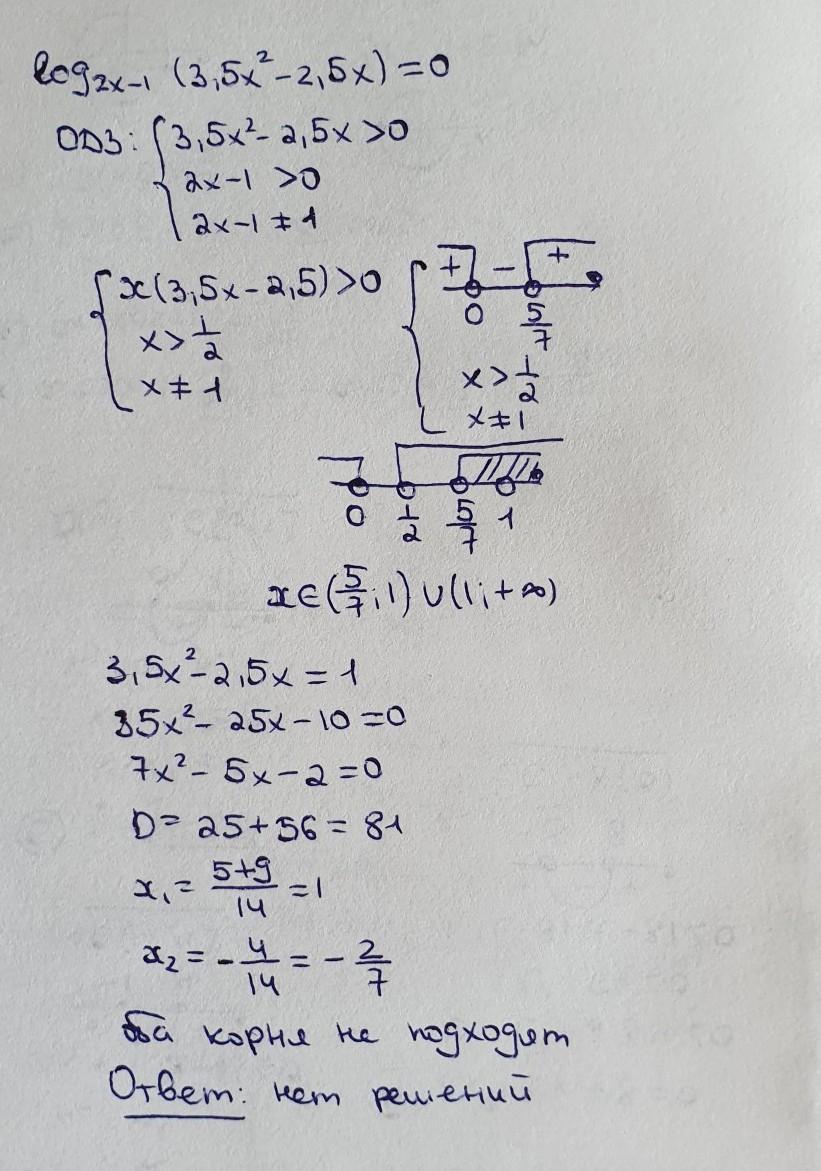 log₂ₓ₋₁ (3,5x² - 2,5x) = 0
ОДЗ: { 3,5x² - 2,5x > 0
2x-1 > 0
2x-1 ≠ 1
{ x(3,5x - 2,5) > 0
x > 1/2
x ≠ 1
{ + - +
0 5/7
x > 1/2
x ≠ 1
0 1/2 5/7 1
x ∈ (5/7; 1) ∪ (1; +∞)
3,5x² - 2,5x = 1
35x² - 25x - 10 = 0
7x² - 5x - 2 = 0
D = 25 + 56 = 81
x₁ = (5+9)/14 = 1
x₂ = - 4/14 = - 2/7
оба корня не подходят
Ответ: нет решений